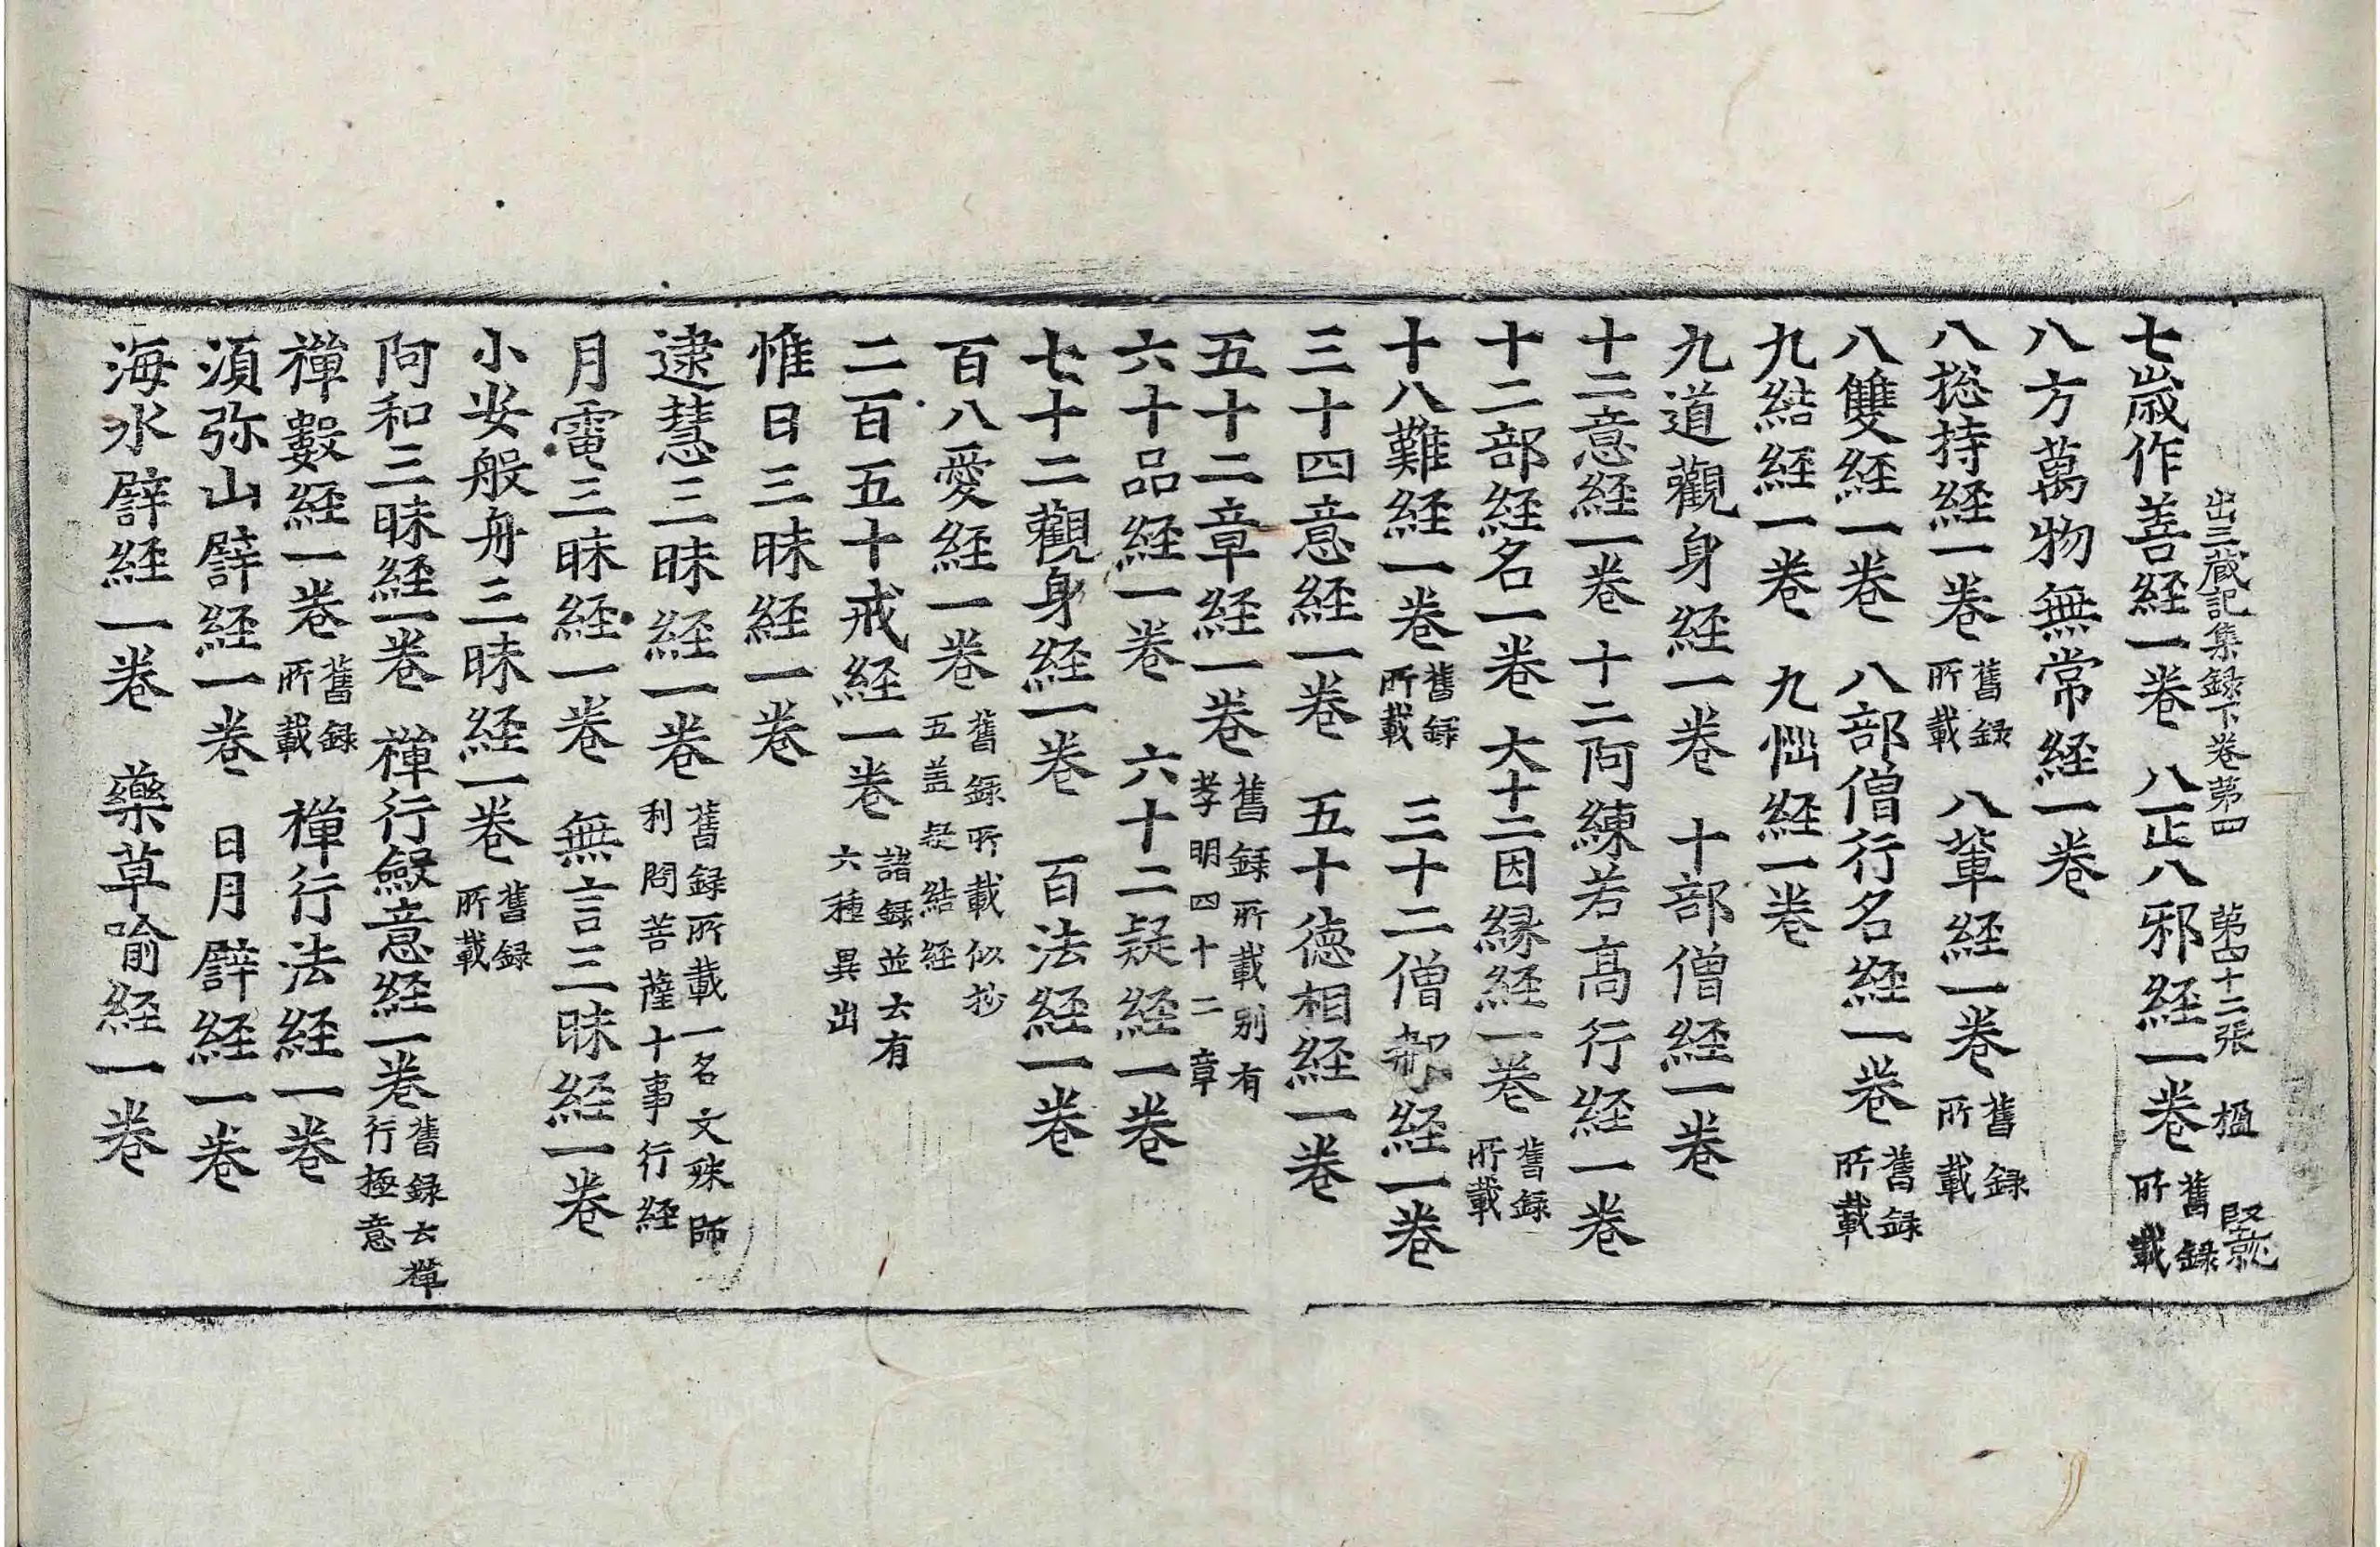 出三蔵記集録下卷苐四 苐四十二張 楹
七歳作善経一卷 八正八邪経一卷 舊録所載
八方萬物無常経一卷
八捴持経一卷 舊録所載 八軰経一卷 舊録所載
八雙経一卷 八部僧行名経一卷 舊録所載
九結経一卷 九惱経一卷
九道觀身経一卷 十部僧経一卷
十二意経一卷 十二阿練若高行経一卷
十二部経名一卷 大十二因緣経一卷 舊録所載
十八難経一卷 舊録所載 三十二僧那経一卷
三十四意経一卷 五十德相経一卷
五十二章経一卷 舊録所載别有孝明四十二章
六十品経一卷 六十二疑経一卷
七十二觀身経一卷 百法経一卷
百八愛経一卷 舊録所載似抄五盖疑結経
二百五十戒経一卷 諸録並云有六種異出
惟日三昧経一卷
逮慧三昧経一卷 舊録所載一名文殊師利問菩薩十事行経
月電三昧経一卷 無言三昧経一卷
小安般舟三昧経一卷 舊録所載
阿和三昧経一卷 禪行斂意経一卷 舊録云禪行撿意
禪數経一卷 舊録所載 禪行法経一卷
湏弥山譬経一卷 日月譬経一卷
海水譬経一卷 藥草喻経一卷